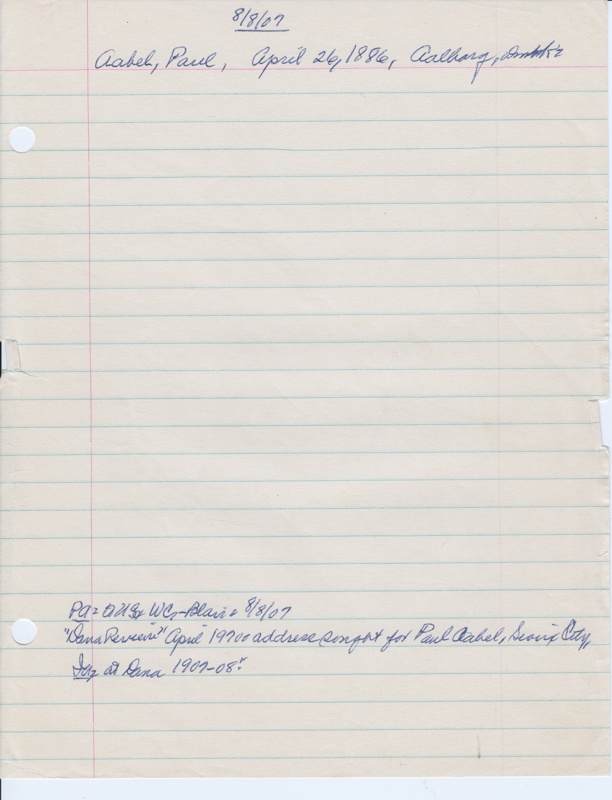 8/8/07
Aabel, Paul, April 26, 1886, Aalborg,
WC, Blair, 8/8/07
"Dana Review" April 1970: address sought for Paul Aabel, Sioux City,
Ia, at Dana 1907-08."